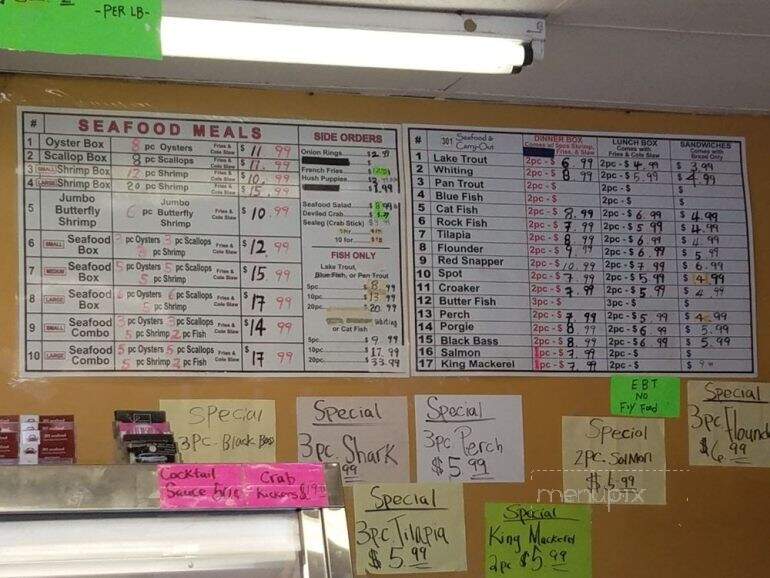 -PER LB-
# SEAFOOD MEALS
1 Oyster Box 8 pc Oysters Fries & Cole Slaw $ 11 99
2 Scallop Box 8 pc Scallops Fries & Cole Slaw $ 11 99
3 SMALL Shrimp Box 12 pc Shrimp Fries & Cole Slaw $ 10 99
4 LARGE Shrimp Box 20 pc Shrimp Fries & Cole Slaw $ 15 99
5 Jumbo Butterfly Shrimp pc Butterfly Shrimp Fries & Cole Slaw $ 10 99
6 SMALL Seafood Box 3 pc Oysters 3 pc Scallops pc Shrimp Fries & Cole Slaw $ 12 99
7 MEDIUM Seafood Box 5 pc Oysters 5 pc Scallops 5 pc Shrimp Fries & Cole Slaw $ 15 99
8 LARGE Seafood Box 6 pc Oysters 6 pc Scallops pc Shrimp Fries & Cole Slaw $ 17 99
9 SMALL Seafood Combo 3 pc Oysters 3 pc Scallops 5 pc Shrimp 2 pc Fish Fries & Cole Slaw $ 14 99
10 LARGE Seafood Combo 5 pc Oysters 5 pc Scallops 5 pc Shrimp 2 pc Fish Fries & Cole Slaw $ 17 99
SIDE ORDERS
Onion Rings
French Fries
Hush Puppies
$1.99
Seafood Salad
Deviled Crab
Sealeg (Crab Stick)
10 for
FISH ONLY
Lake Trout,
Blue Fish, or Pan Trout
5pc 8 99
10pc 99
20pc 20 99
Whiting
or Cat Fish
5pc $ 9 99
10pc $ 17 99
20pc $ 33 99
# 301 Seafood & Carry-Out
DINNER BOX Fries, & Slaw
LUNCH BOX Comes with Fries & Cole Slaw
SANDWICHES Comes with Bread Only
1 Lake Trout 2pc - $ 6.99 2pc - $ 4.99 $ 3.99
2 Whiting 2pc - $ 8.99 2pc - $ 5.99 $ 4.99
3 Pan Trout 2pc - $ 2pc - $ $
4 Blue Fish 2pc - $ 2pc - $ $
5 Cat Fish 2pc - $ 8.99 2pc - $ 6.99 $ 4.99
6 Rock Fish 2pc - $ 7.99 2pc - $ 5 99 $ 4.99
7 Tilapia 2pc - $ 8 99 2pc - $ 6.99 $ 4.99
8 Flounder 2pc - $ 9.99 2pc - $ 6.99 $ 5 99
9 Red Snapper 2pc - $ 10.99 2pc - $ 7 99 $ 6.99
10 Spot 2pc - $ 7 99 2pc - $ 5 99 $ 4 99
11 Croaker 2pc - $ 7.99 2pc - $ 5 99 $ 4 99
12 Butter Fish 3pc - $ 3pc - $ $
13 Perch 2pc - $ 7 99 2pc - $ 5 99 $ 4.99
14 Porgie 2pc - $ 8.99 2pc - $ 6 99 $ 5.99
15 Black Bass 2pc - $ 8.99 2pc - $ 6 99 $ 5.99
16 Salmon 1pc - $ 7.99 2pc - $ $
17 King Mackerel 1pc - $ 7.99 2pc - $ $
EBT
NO
Fry Food
Special
3pc. Black Bass
Special
3pc. Shark
99
Special
3pc Perch
$5 99
Special
2pc. Salmon
$5.99
Special
3pc Flound
$6.99
Cocktail
Sauce
Crab
Special
3pc. Tilapia
$5.99
Special
King Mackerel
2pc $5 99
menupix